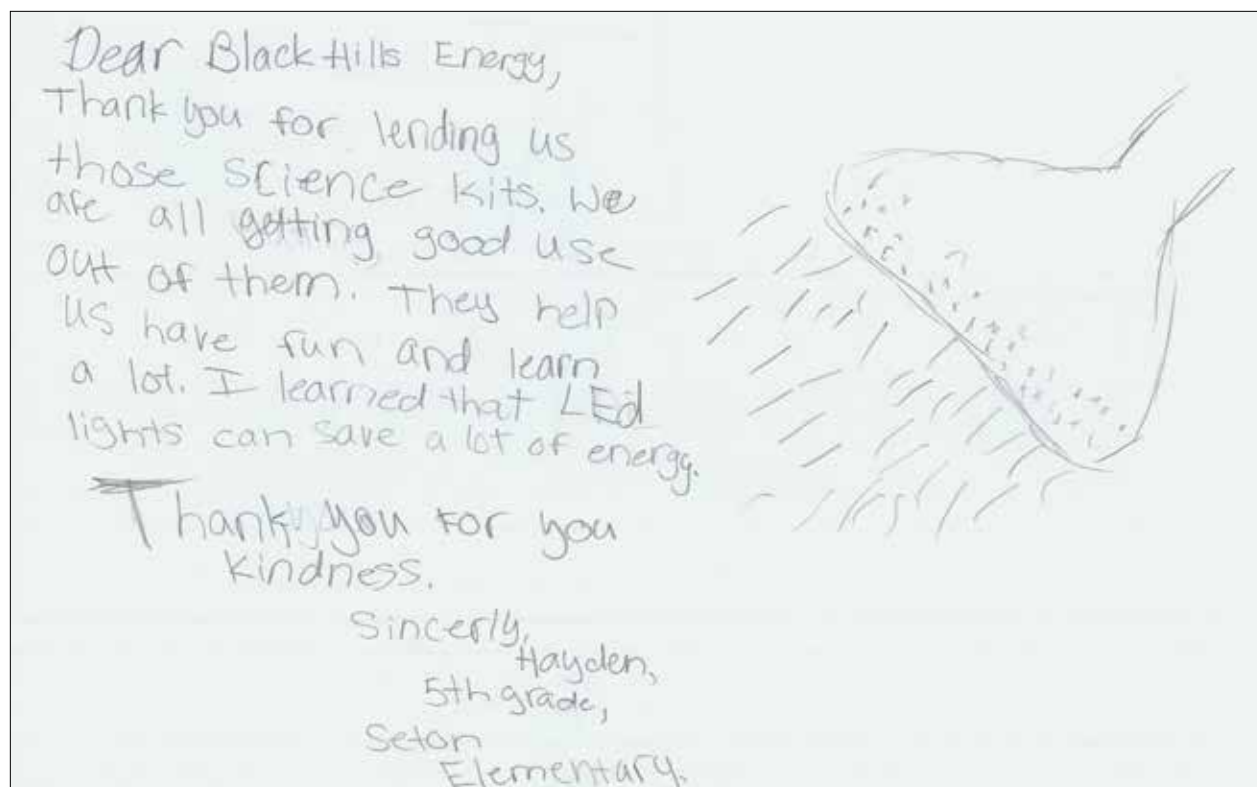 Dear Black Hills Energy,
Thank you for lending us
those science kits. We
are all getting good use
out of them. They help
us have fun and learn
a lot. I learned that LEd
lights can save a lot of energy.
Thank you For you
kindness.
Sincerly,
Hayden,
5th grade,
Seton
Elementary.